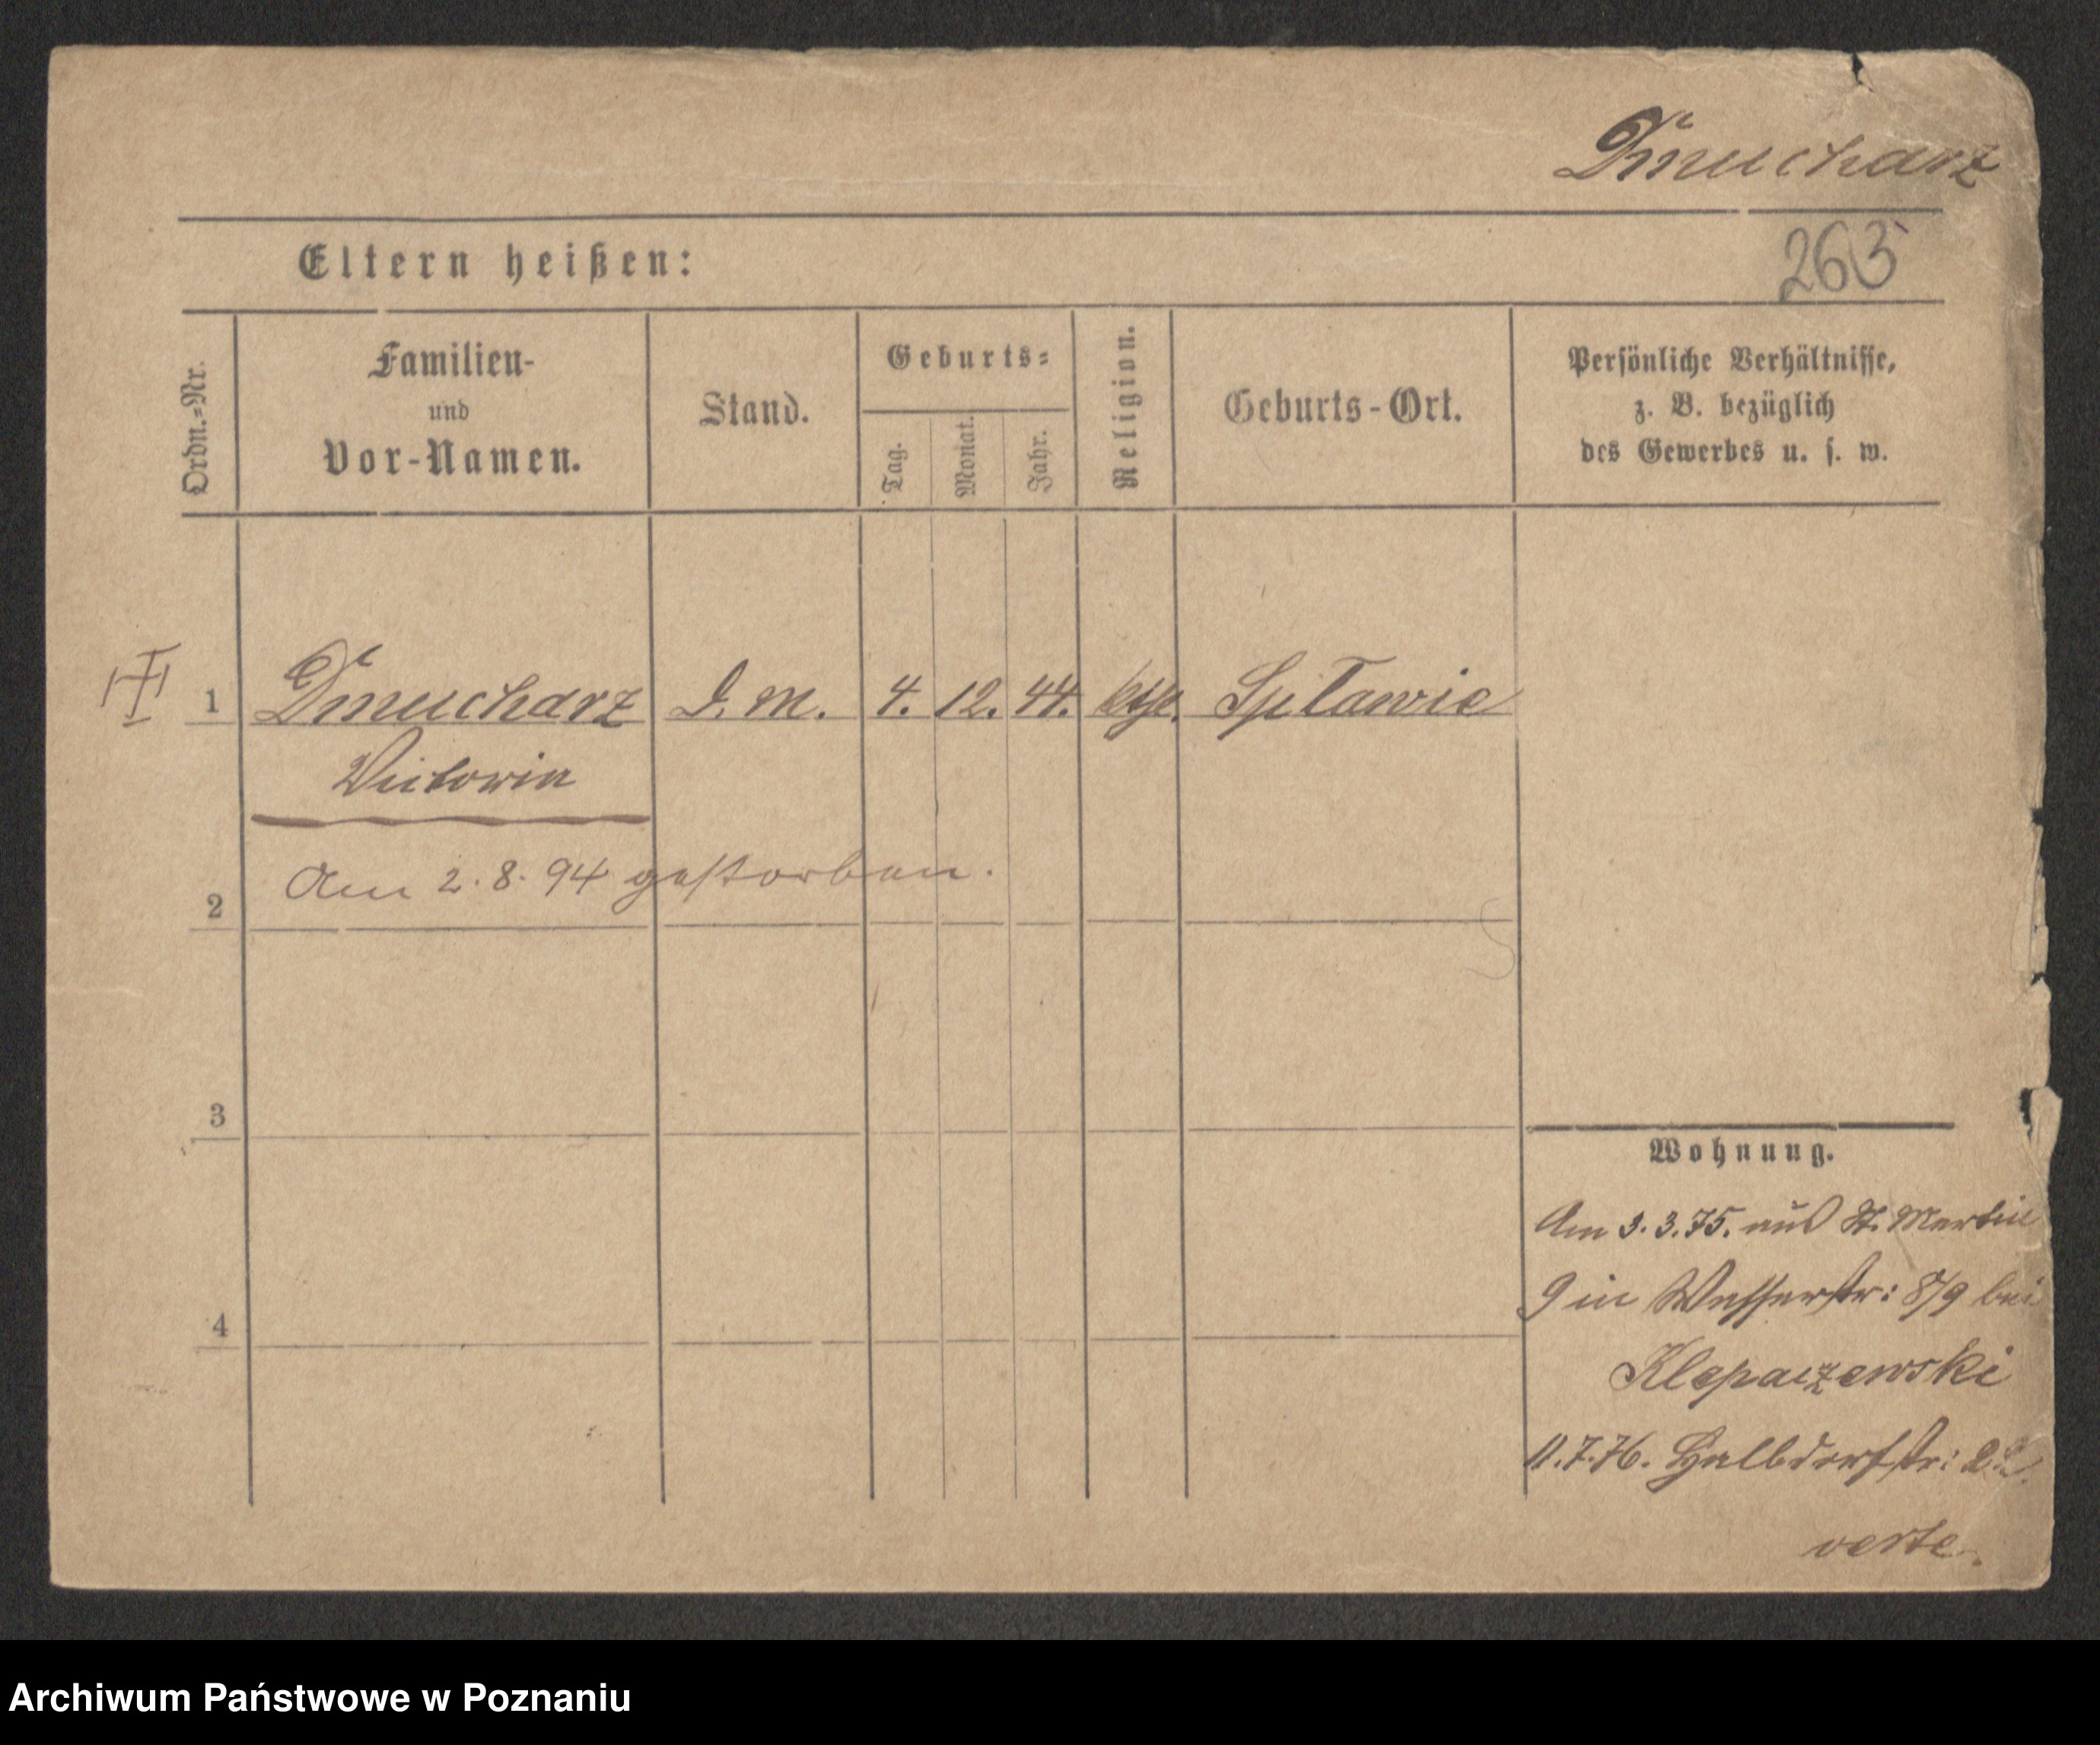 Dmucharz
Eltern heißen:
263
Ordn.=Nr.
Familien-
und
Vor-Namen.
Stand.
Geburts=
Tag.
Monat.
Jahr.
Religion.
Geburts-Ort.
Persönliche Verhältnisse,
z. B. bezüglich
des Gewerbes u. s. w.
1 Dmucharz D. M. 4. 12. 44. kth. Spławie
Victoria
2 Am 2. 8. 94 gestorben.
3
4
Wohnung.
Am 3. 3. 75. aus St. Martin
9 in Wasserstr: 8/9 bei
Klepaczewski
11. 7. 76. Halbdorfstr:
verte.
Archiwum Państwowe w Poznaniu